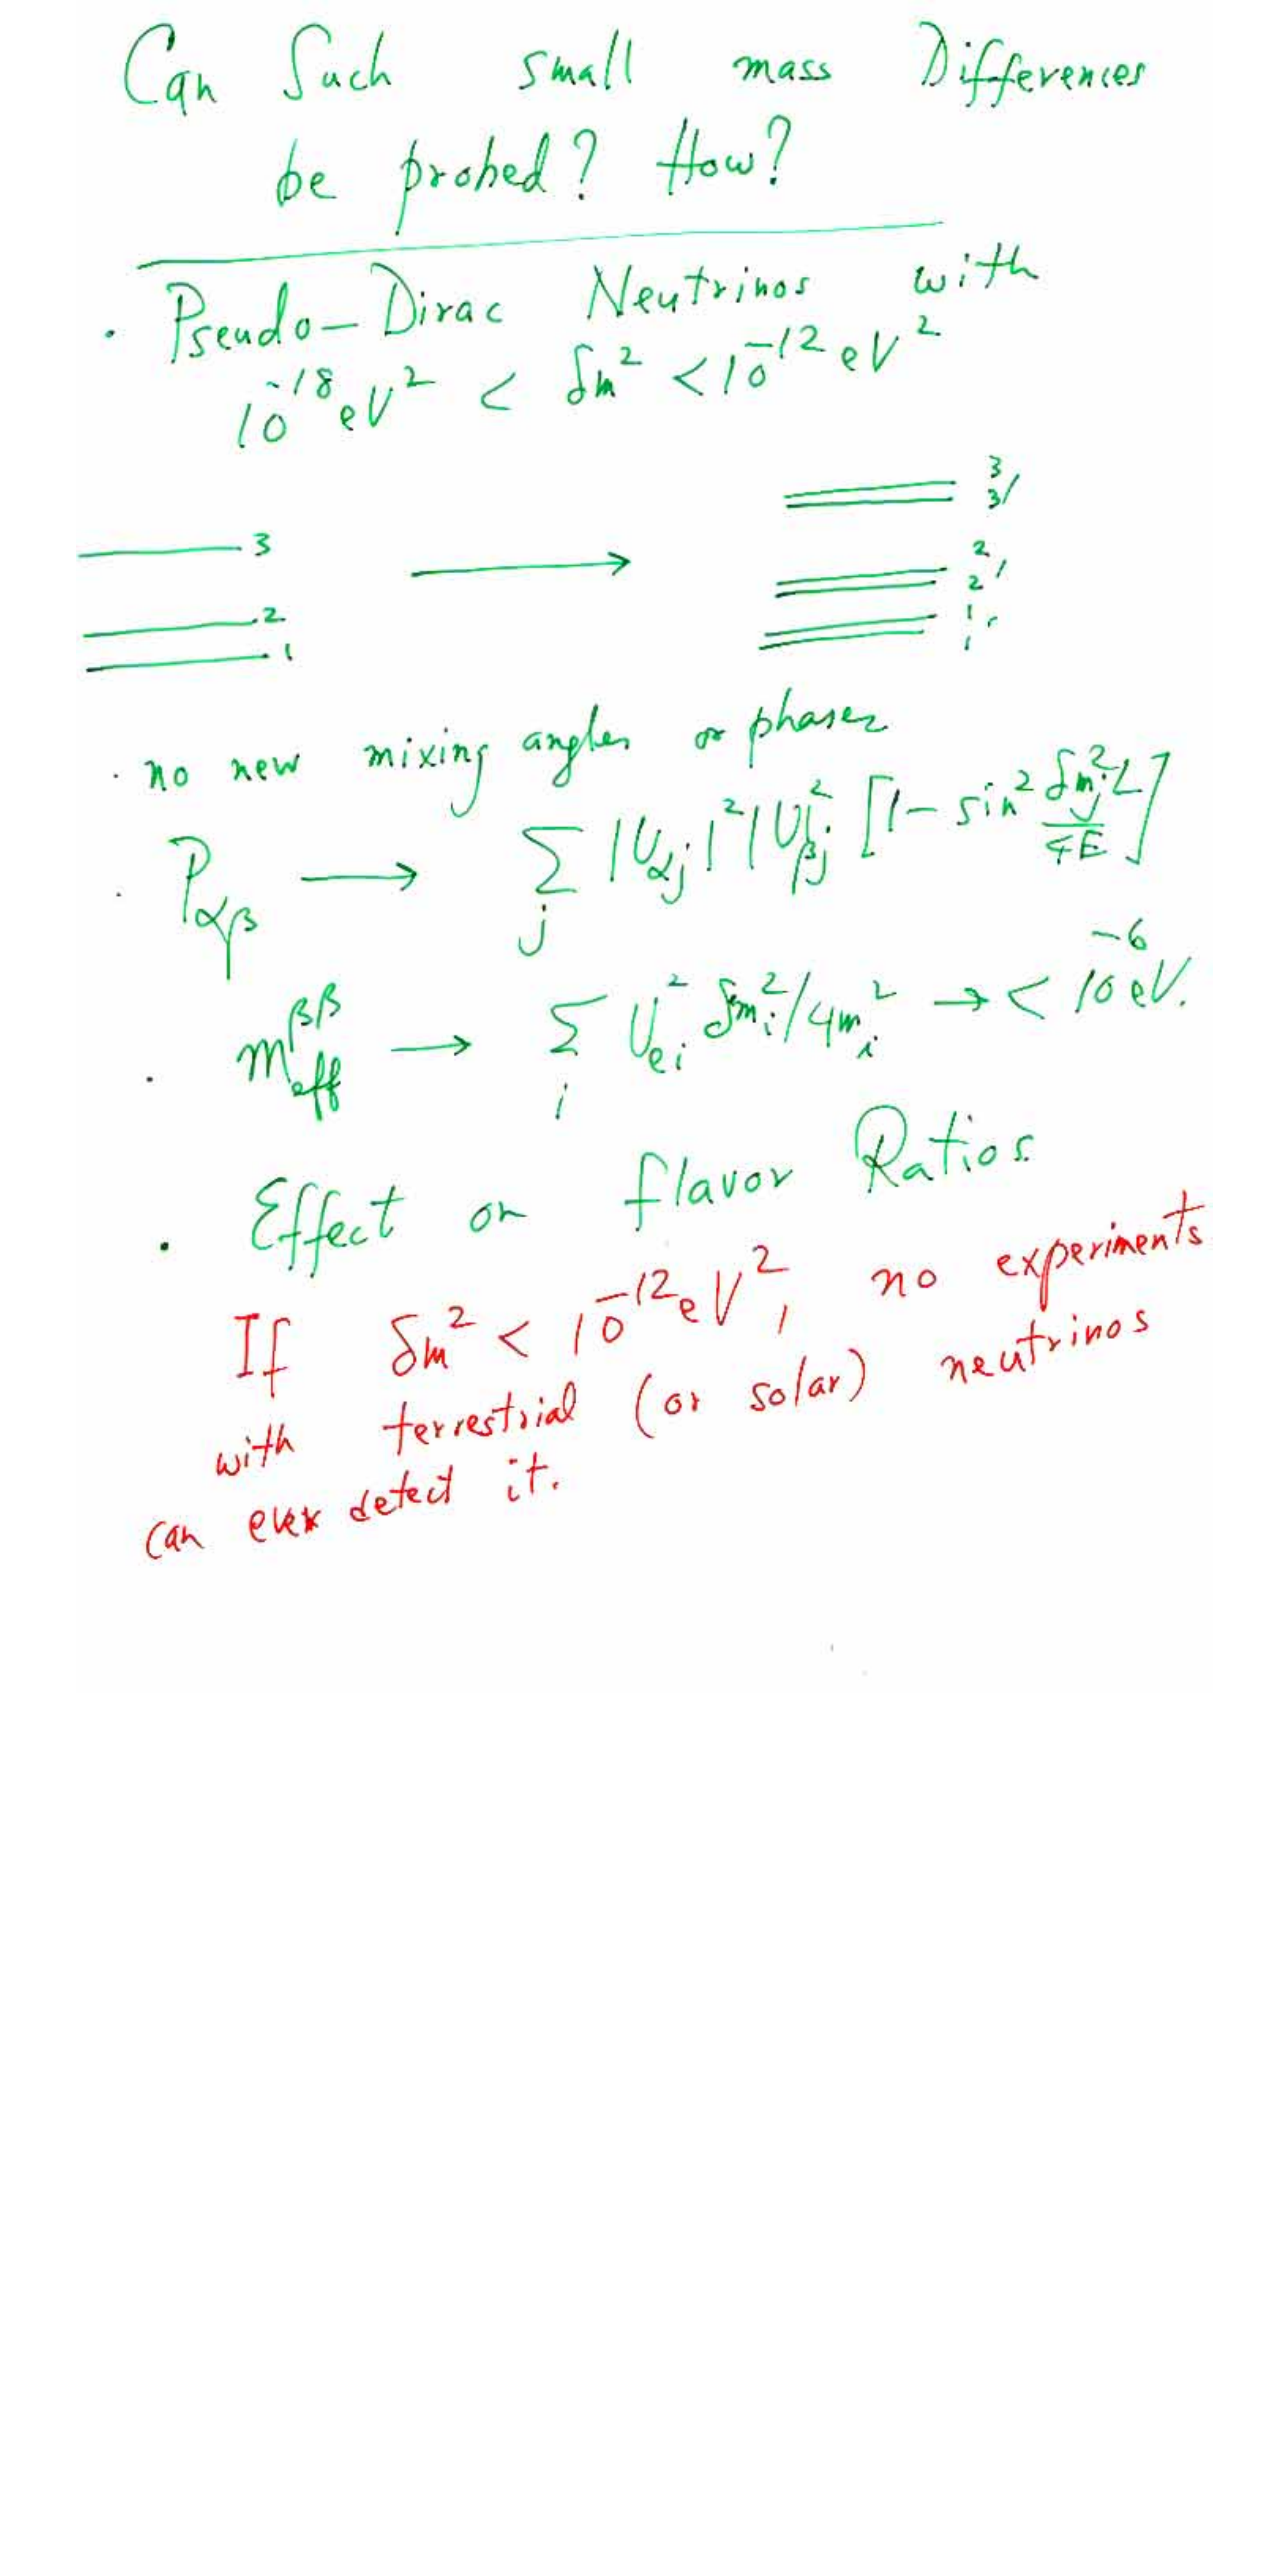 Can Such small mass Differences
be probed? How?
· Pseudo-Dirac Neutrinos with
10^-18 eV^2 < δm^2 < 10^-12 eV^2
3
2
1
3
3'
2
2'
1'
1
· no new mixing angles or phases
· P_αβ → Σ_j |U_αj|^2 |U_βj|^2 [1 - sin^2 δm_j^2 L / 4E]
· m_eff^ββ → Σ_i U_ei^2 δm_i^2/4m_i^2 → < 10^-6 eV.
· Effect on flavor Ratios
If δm^2 < 10^-12 eV^2, no experiments
with terrestrial (or solar) neutrinos
can ever detect it.